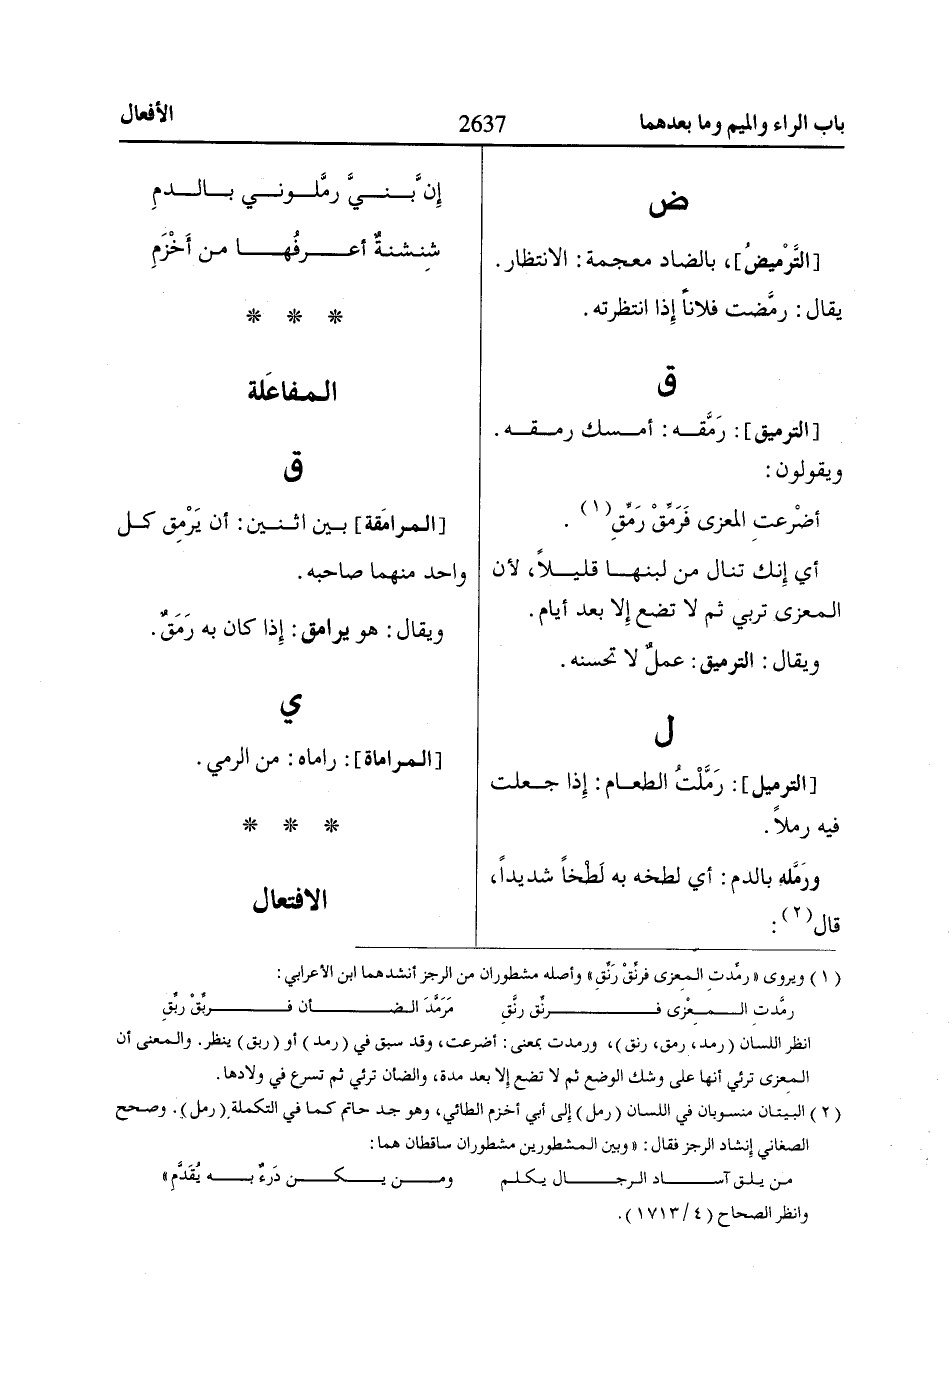 باب الراء والميم وما بعدهما
2637
الأفعال
ض
[التَّرْميضُ]، بالضاد معجمة: الانتظار.
يقال: رمَّضت فلاناً إذا انتظرته.
ق
[الترميق]: رَمَّقـه: أمسك رمقه.
ويقولون:
أضْرعتِ المعزى فَرَمِّقْ رَمِّق(١).
أي إنك تنال من لبنها قليلاً، لأن
المعزى تربي ثم لا تضع إلا بعد أيام.
ويقال: الترميق: عملٌ لا تحسنه.
ل
[الترميل]: رَمَّلْتُ الطعام: إذا جعلت
فيه رملاً.
ورَمَّله بالدم: أي لطخه به لَطْخاً شديداً،
قال(٢):
إن بَنيَّ رمَّلوني بالدمِ
شنشنةٌ أعرفُها من أَخْزَمِ
* * *
المفاعَلة
ق
[المرامَقة] بين اثنين: أن يَرْمِق كل
واحد منهما صاحبه.
ويقال: هو يرامق: إذا كان به رَمَقٌ.
ي
[المراماة]: راماه: من الرمي.
* * *
الافتعال
(١) ويروى «رمِّدت المعزى فرنِّقْ رَنِّق» وأصله مشطوران من الرجز أنشدهما ابن الأعرابي:
رمَّدتِ المعْزى فرنِّق رنَّق مَرَمَّدَ الضأن فربِّقْ ربِّق
انظر اللسان (رمد، رمق، رنق)، ورمدت بمعنى: أضرعت، وقد سبق في (رمد) أو (ربق) ينظر. والمعنى أن
المعزى ترئي أنها على وشك الوضع ثم لا تضع إلا بعد مدة، والضأن ترئي ثم تسرع في ولادها.
(٢) البيتان منسوبان في اللسان (رمل) إلى أبي أخزم الطائي، وهو جد حاتم كما في التكملة (رمل). وصحح
الصغاني إنشاد الرجز فقال: «وبين المشطورين مشطوران ساقطان هما:
من يلق آساد الرجال يكلم ومن يكن دَرءٌ به يُقَدَّم»
وانظر الصحاح (٤/ ١٧١٣).